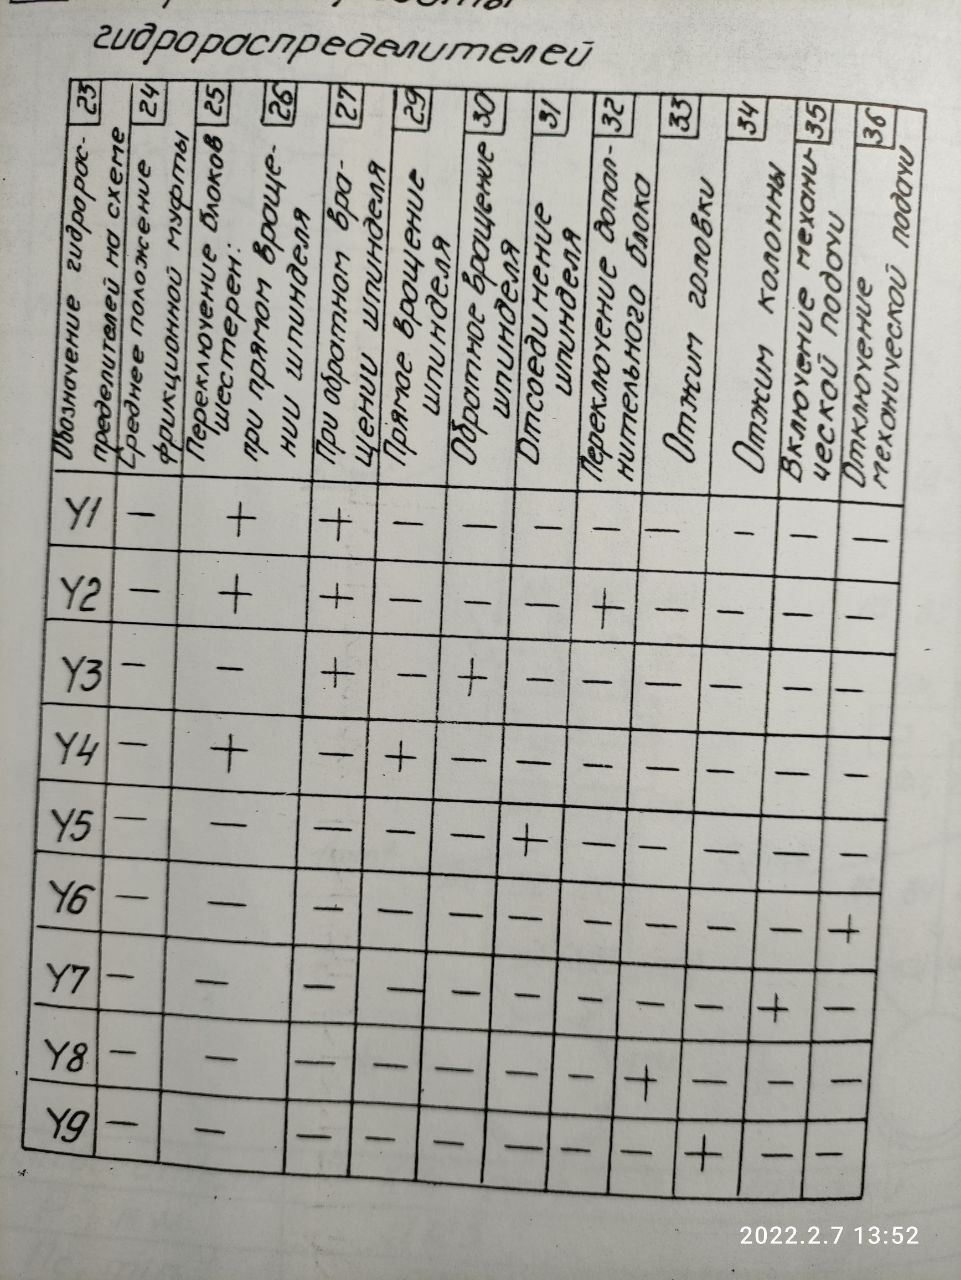 гидрораспределителей
23
Обозначение гидрорас-
пределителей на схеме
24
Среднее положение
фрикционной муфты
25
Переключение блоков
шестерен:
26
при прямом враще-
нии шпинделя
27
При обратном вра-
щении шпинделя
29
Прямое вращение
шпинделя
30
Обратное вращение
шпинделя
31
Отсоединение
шпинделя
32
Переключение допол-
нительного блока
33
Отжим головки
34
Отжим колонны
35
Включение механи-
ческой подачи
36
Отключение
механической подачи
Y1 − + + − − − − − − − −
Y2 − + + − − − + − − − −
Y3 − − + − + − − − − − −
Y4 − + − + − − − − − − −
Y5 − − − − − + − − − − −
Y6 − − − − − − − − − − +
Y7 − − − − − − − − − + −
Y8 − − − − − − − + − − −
Y9 − − − − − − − − + − −
2022.2.7 13:52